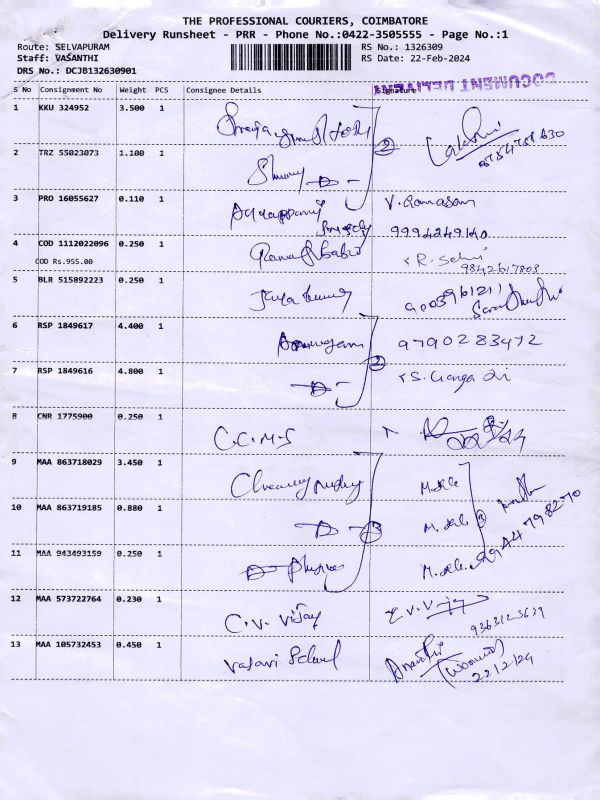 THE PROFESSIONAL COURIERS, COIMBATORE
Delivery Runsheet - PRR - Phone No.:0422-3505555 - Page No.:1
Route: SELVAPURAM RS No.: 1326309
Staff: VASANTHI RS Date: 22-Feb-2024
DRS No.: DCJB132630901
DOCUMENT DELIVERY
S No Consignment No Weight PCS Consignee Details Signature
1 KKU 324952 3.500 1 2 Lakshmi
2 TRZ 55023073 1.100 1 -D-
3 PRO 16055627 0.110 1 V. Ramasam
9994249140
4 COD 1112022096 0.250 1 R. Selvi
COD Rs.955.00 9842617803
5 BLR 515892223 0.250 1
6 RSP 1849617 4.400 1 Arumugam 9790283472
7 RSP 1849616 4.800 1 -D- 2 S. Ganga
8 CNR 1775900 0.250 1 C.C.M.S
9 MAA 863718029 3.450 1
10 MAA 863719185 0.880 1 -D- 3
11 MAA 943493159 0.250 1 -D-
12 MAA 573722764 0.230 1 C.V. Vijay C.V. Vijay
13 MAA 105732453 0.450 1 Vasavi School
22/2/24